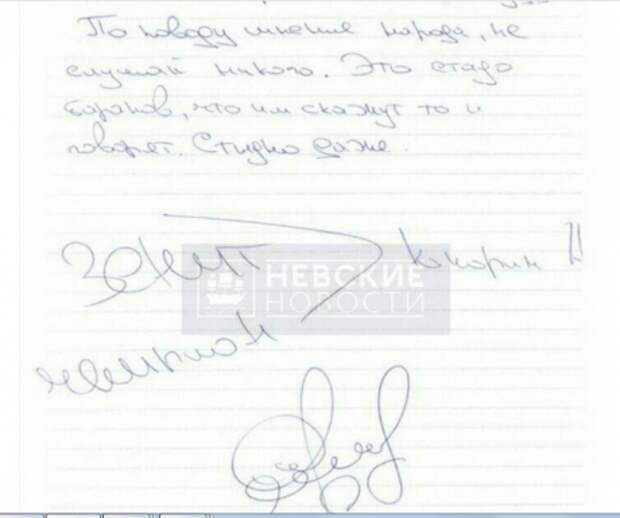 По поводу мнение народа, не
слушай никого. Это стадо
баранов, что им скажут то и
говорят. Стыдно даже.
Зенит
Кокорин 11
НЕВСКИЕ
НОВОСТИ
чемпион